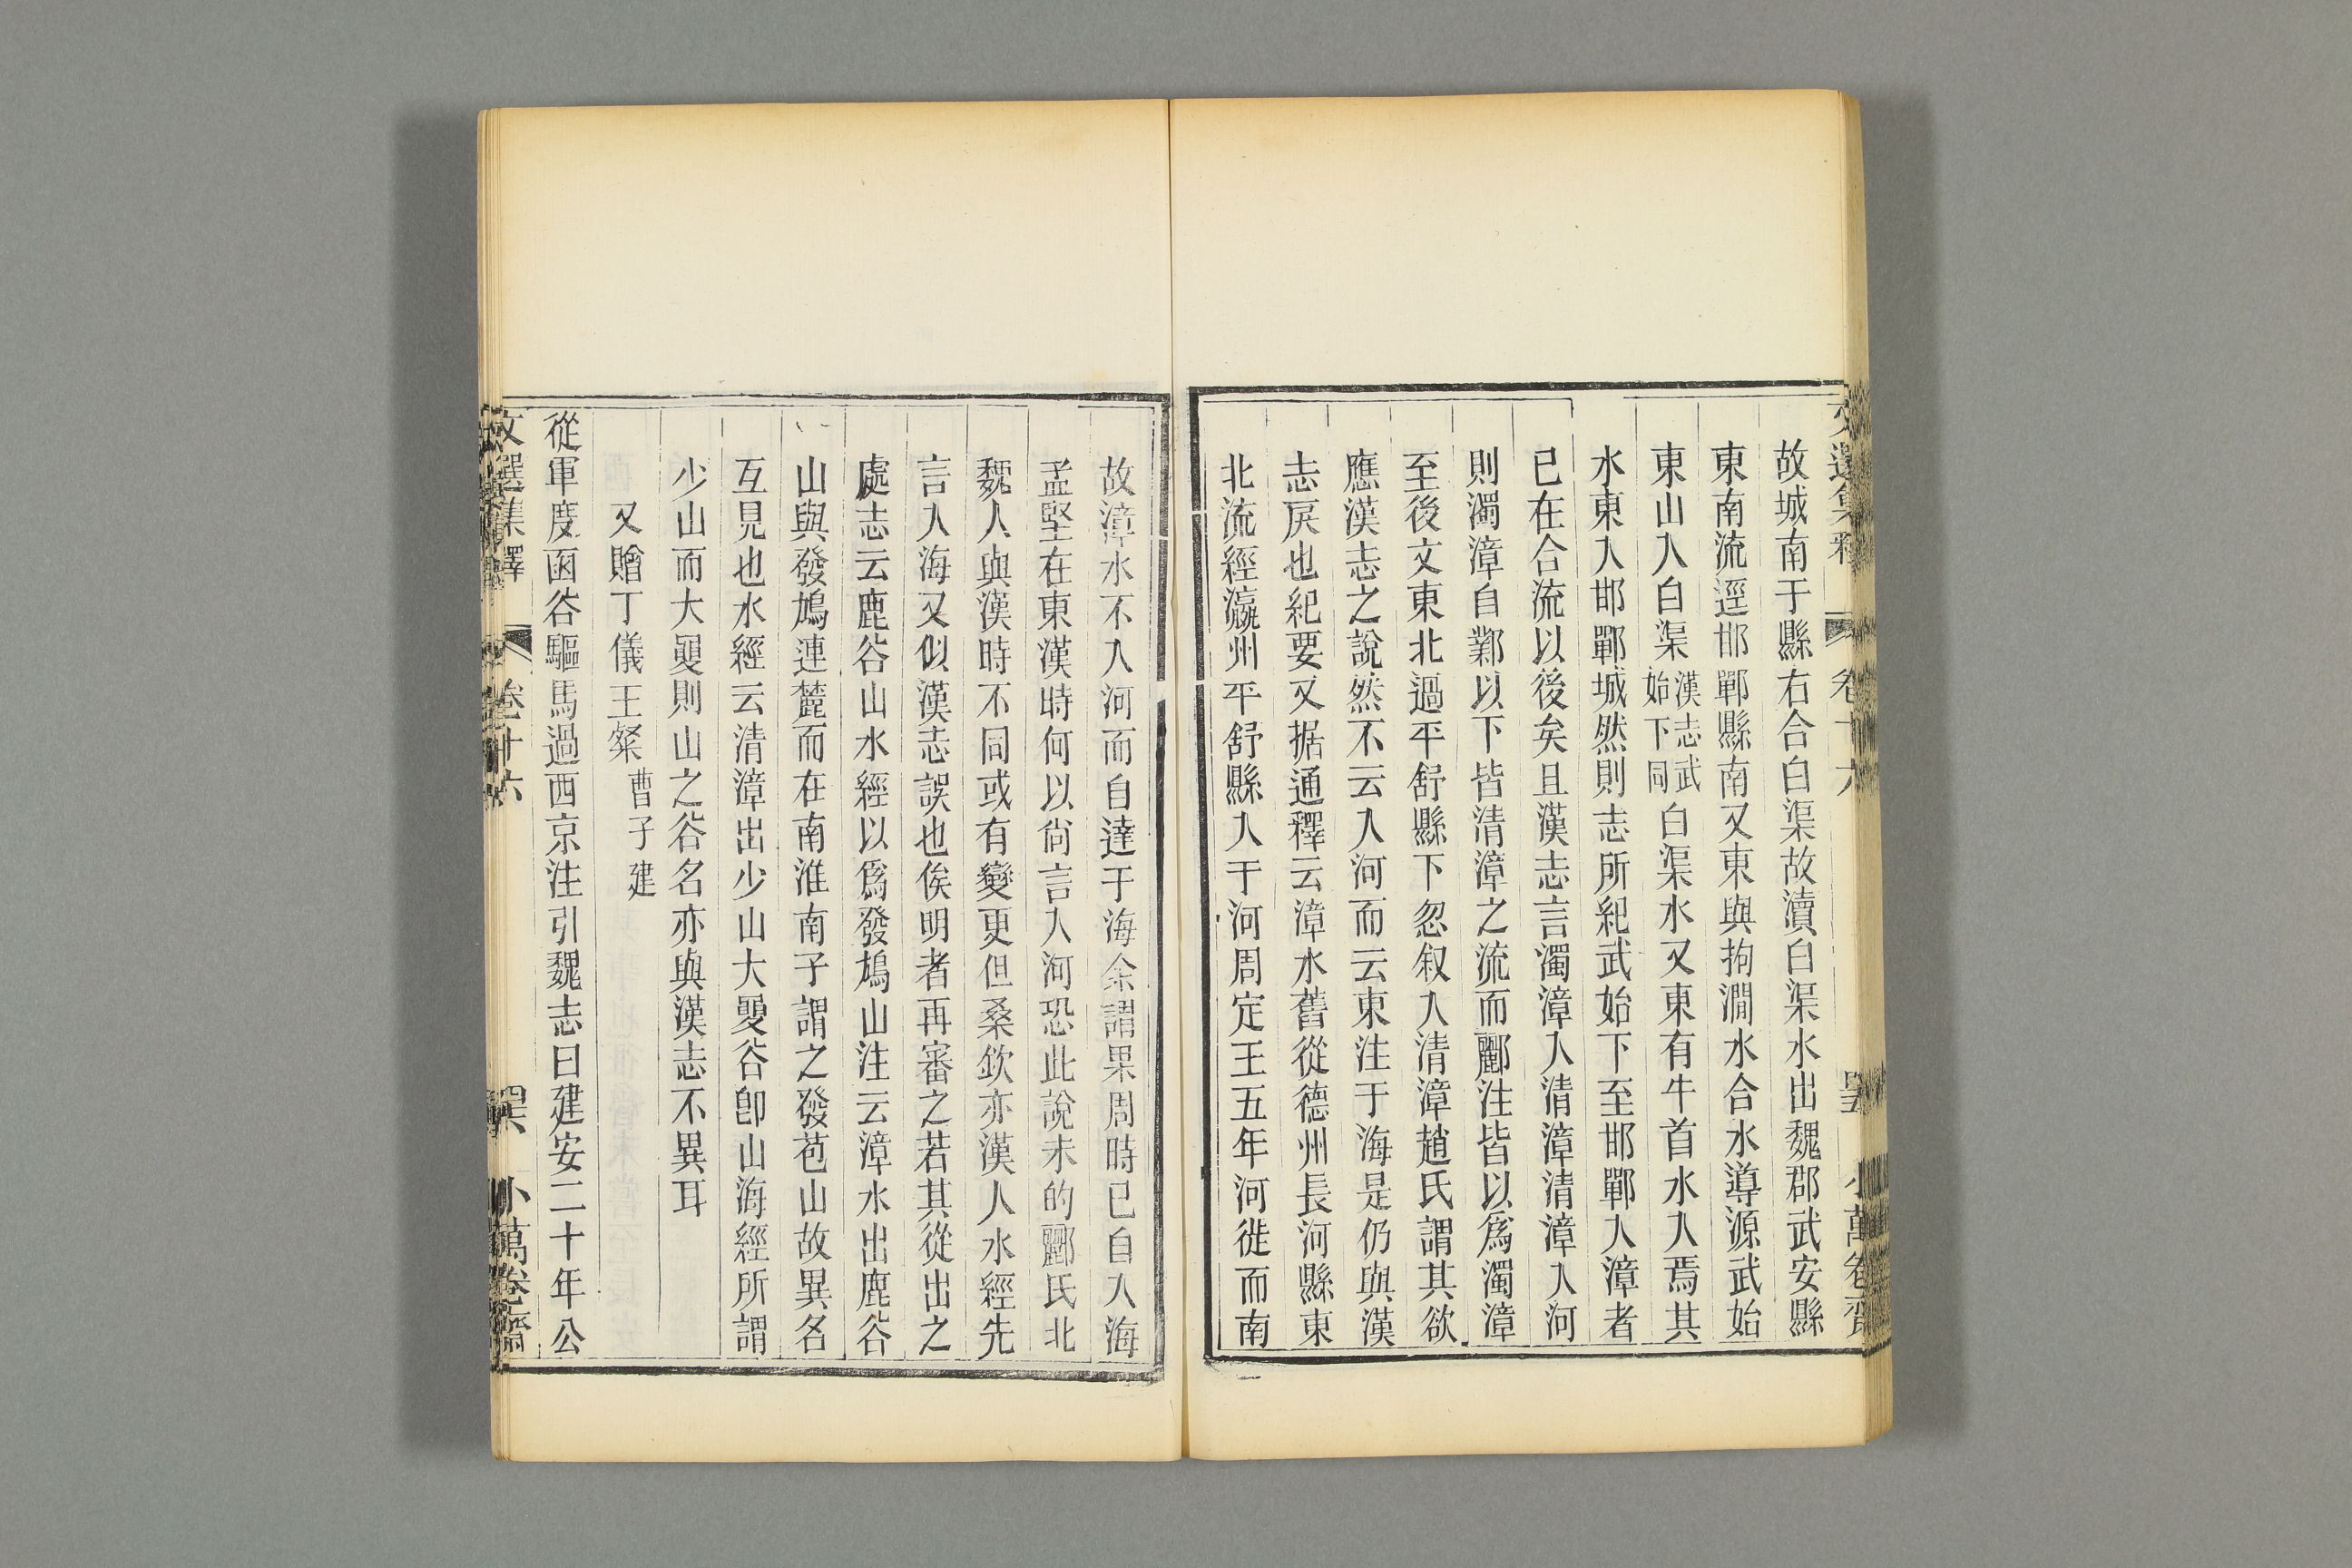 故城南于縣右合白渠故瀆白渠水出魏郡武安縣
東南流逕邯鄲縣南又東與拘澗水合水導源武始
東山入白渠漢志武始下同白渠水又東有牛首水入焉其
水東入邯鄲城然則志所紀武始下至邯鄲入漳者
已在合流以後矣且漢志言濁漳入清漳清漳入河
則濁漳自鄴以下皆清漳之流而酈注皆以爲濁漳
至後文東北過平舒縣下忽叙入清漳趙氏謂其欲
應漢志之說然不云入河而云東注于海是仍與漢
志戾也紀要又据通釋云漳水舊從德州長河縣東
北流經瀛州平舒縣入于河周定王五年河徙而南
故漳水不入河而自達于海余謂果周時已自入海
孟堅在東漢時何以尙言入河恐此說未的酈氏北
魏人與漢時不同或有變更但桑欽亦漢人水經先
言入海又似漢志誤也俟明者再審之若其從出之
處志云鹿谷山水經以爲發鳩山注云漳水出鹿谷
山與發鳩連麓而在南淮南子謂之發苞山故異名
互見也水經云清漳出少山大㚅谷卽山海經所謂
少山而大㚅則山之谷名亦與漢志不異耳
又贈丁儀王粲 曹子建
從軍度函谷驅馬過西京注引魏志曰建安二十年公
文選集釋 卷十六 罡六 小萬卷齋